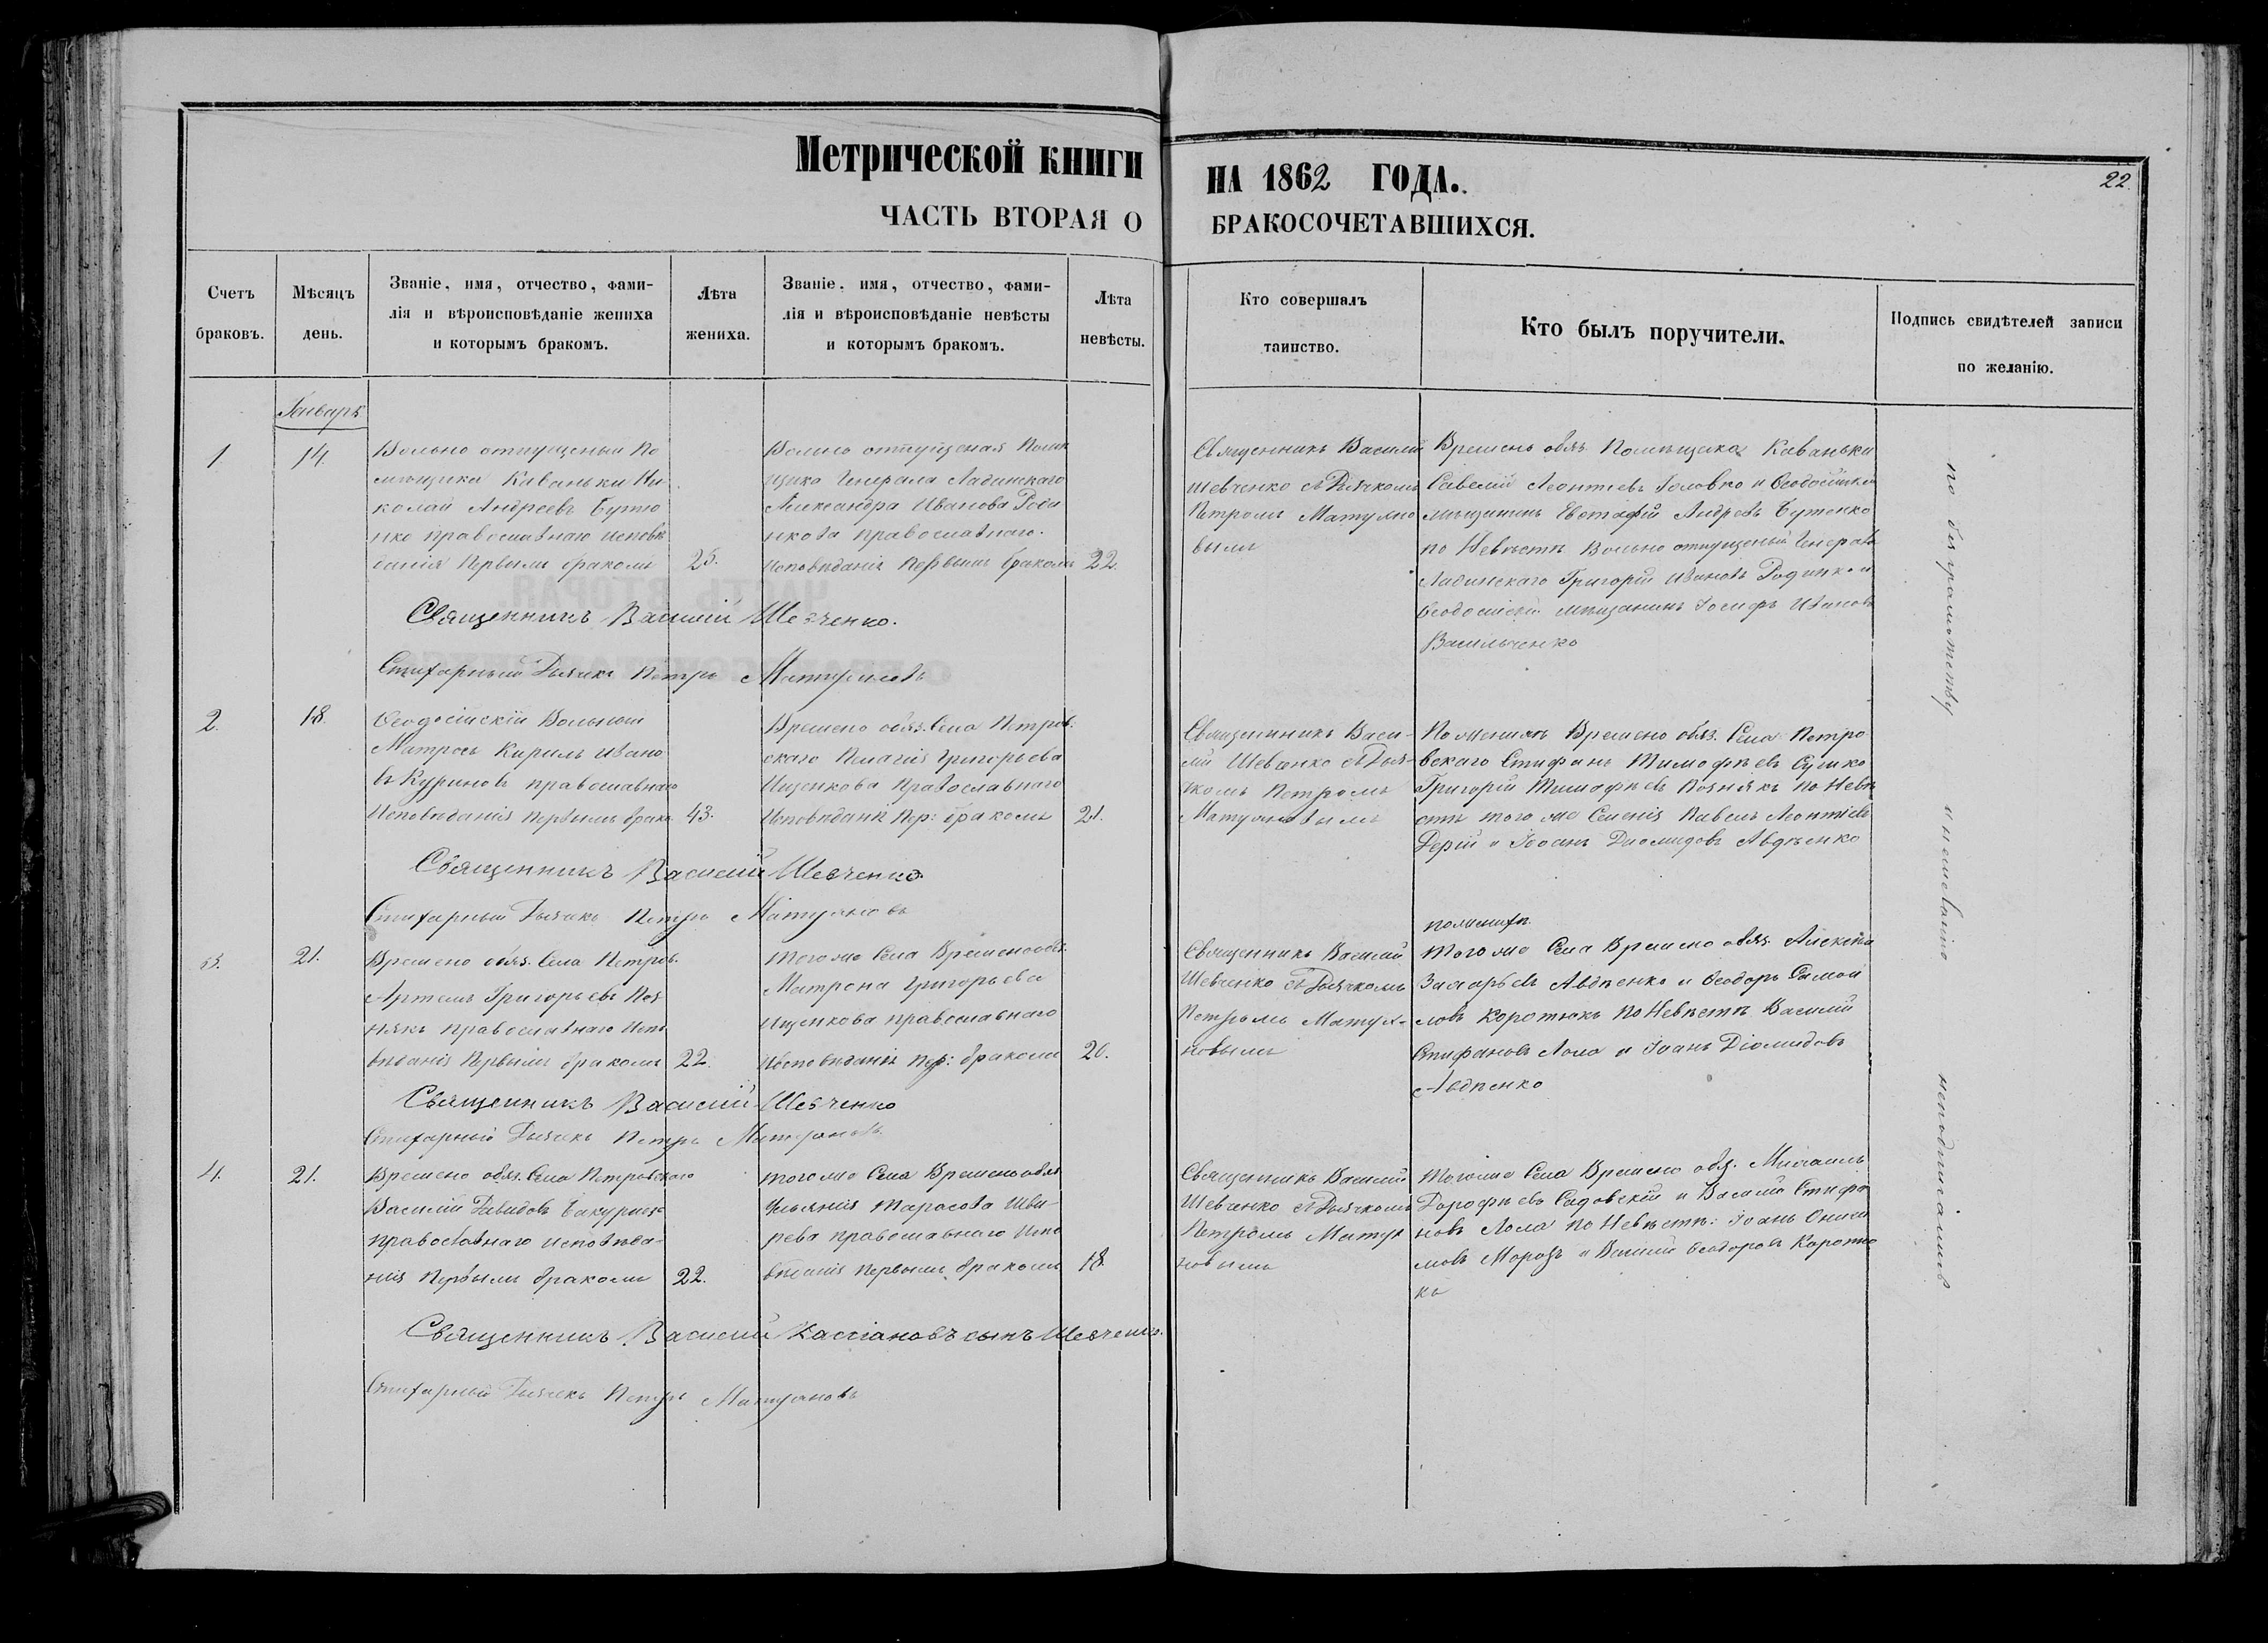 Метрической книги
НА 1862 ГОДА.
22.
ЧАСТЬ ВТОРАЯ О
БРАКОСОЧЕТАВШИХСЯ.
Счетъ
браковъ.
Мѣсяцъ
день.
Званіе, имя, отчество, фами-
лія и вѣроисповѣданіе жениха
и которымъ бракомъ.
Лѣта
жениха.
Званіе, имя, отчество, фами-
лія и вѣроисповѣданіе невѣсты
и которымъ бракомъ.
Лѣта
невѣсты.
Кто совершалъ
таинство.
Кто былъ поручители.
Подпись свидѣтелей записи
по желанію.
Январь
1
14.
Вольно отпущеный По
мѣщика Каваньки Ни
колай Андреевъ Бутю
нко православнаго исповѣ
данія Первымъ бракомъ
25.
Вольно отпущеная Помѣ
щика Генерала Ладинскаго
Александра Иванова Роди
нкова православнаго
Исповѣданія Первымъ бракомъ
22.
Священникъ Василій
Шевченко съ Дьячкомъ
Петромъ Матуяно
вымъ
Времено обяз. Помѣщика Каваньки
Савелій Леонтьевъ Головко и Ѳеодосійскій
мѣщанинъ Евстафій Андреевъ Бутенко
по Невѣстѣ Вольно отпущеный Генерала
Ладинскаго Григорій Ивановъ Родинко и
Ѳеодосійскій мѣщанинъ Іосифъ Ивановъ
Васильченко
Священникъ Василій Шевченко.
Стихарный Дьячекъ Петръ Матуяновъ
2.
18.
Ѳеодосійскій Вольный
Матросъ Кирилъ Ивано
въ Куриновъ православнаго
Исповѣданія первымъ брако
43.
Времено обяз. Села Петров.
скаго Пелагія Григорьева
Ищенкова Православнаго
Исповѣданія Пер: бракомъ
21.
Священникъ Васи-
лій Шевченко съ Дья-
чкомъ Петромъ
Матуяновымъ
По женихѣ Времено обяз. Села Петро
вскаго Стифанъ Тимофѣевъ
Григорій Тимофѣевъ Познякъ по Невѣ
стѣ того же Селенія Павелъ Леонтіевъ
Дерій и Іоанъ Диомидовъ Авдѣенко
Священникъ Василій Шевченко.
Стихарный Дьячекъ Петръ Матуяновъ
3.
21.
Времено обяз. Села Петров.
Артемъ Григорьевъ Поз
някъ православнаго Испо
вѣданія Первымъ бракомъ
22.
того же Села Времено обяз.
Матрона Григорьева
Ищенкова православнаго
Исповѣданія пер: бракомъ
20.
Священникъ Василій
Шевченко съ Дьячкомъ
Петромъ Матуя-
новымъ
по женихѣ
того же Села Времено обяз. Алексѣй
Захарьевъ Авдѣенко и Ѳеодоръ Самой
ловъ Коротюкъ по Невѣстѣ Василій
Стифановъ Лола и Іоанъ Діомидовъ
Авдѣенко
Священникъ Василій Шевченко
Стихарный Дьячекъ Петръ Матуяновъ
4.
21.
Времено обяз. Села Петровскаго
Василій Давидовъ
православнаго исповѣда-
нія Первымъ бракомъ
22.
того же Села Времено обяз
Ульянія Тарасова Шви-
рева православнаго Испо
вѣданія первымъ бракомъ
18.
Священникъ Василій
Шевченко съ Дьячкомъ
Петромъ Матуя
новымъ
Того же Села Времено обяз. Михаилъ
Дорофѣевъ Садовскій и Василій Стифа
новъ Лола по Невѣстѣ: ІоанъОниси
мовъ Морозъ и Василій Ѳеодоровъ Коротю
къ
Священникъ Василій Кассіановъ сынъ Шевченко.
Стихарный Дьячекъ Петръ Матуяновъ
по безграмотству и неимѣнію неподписались